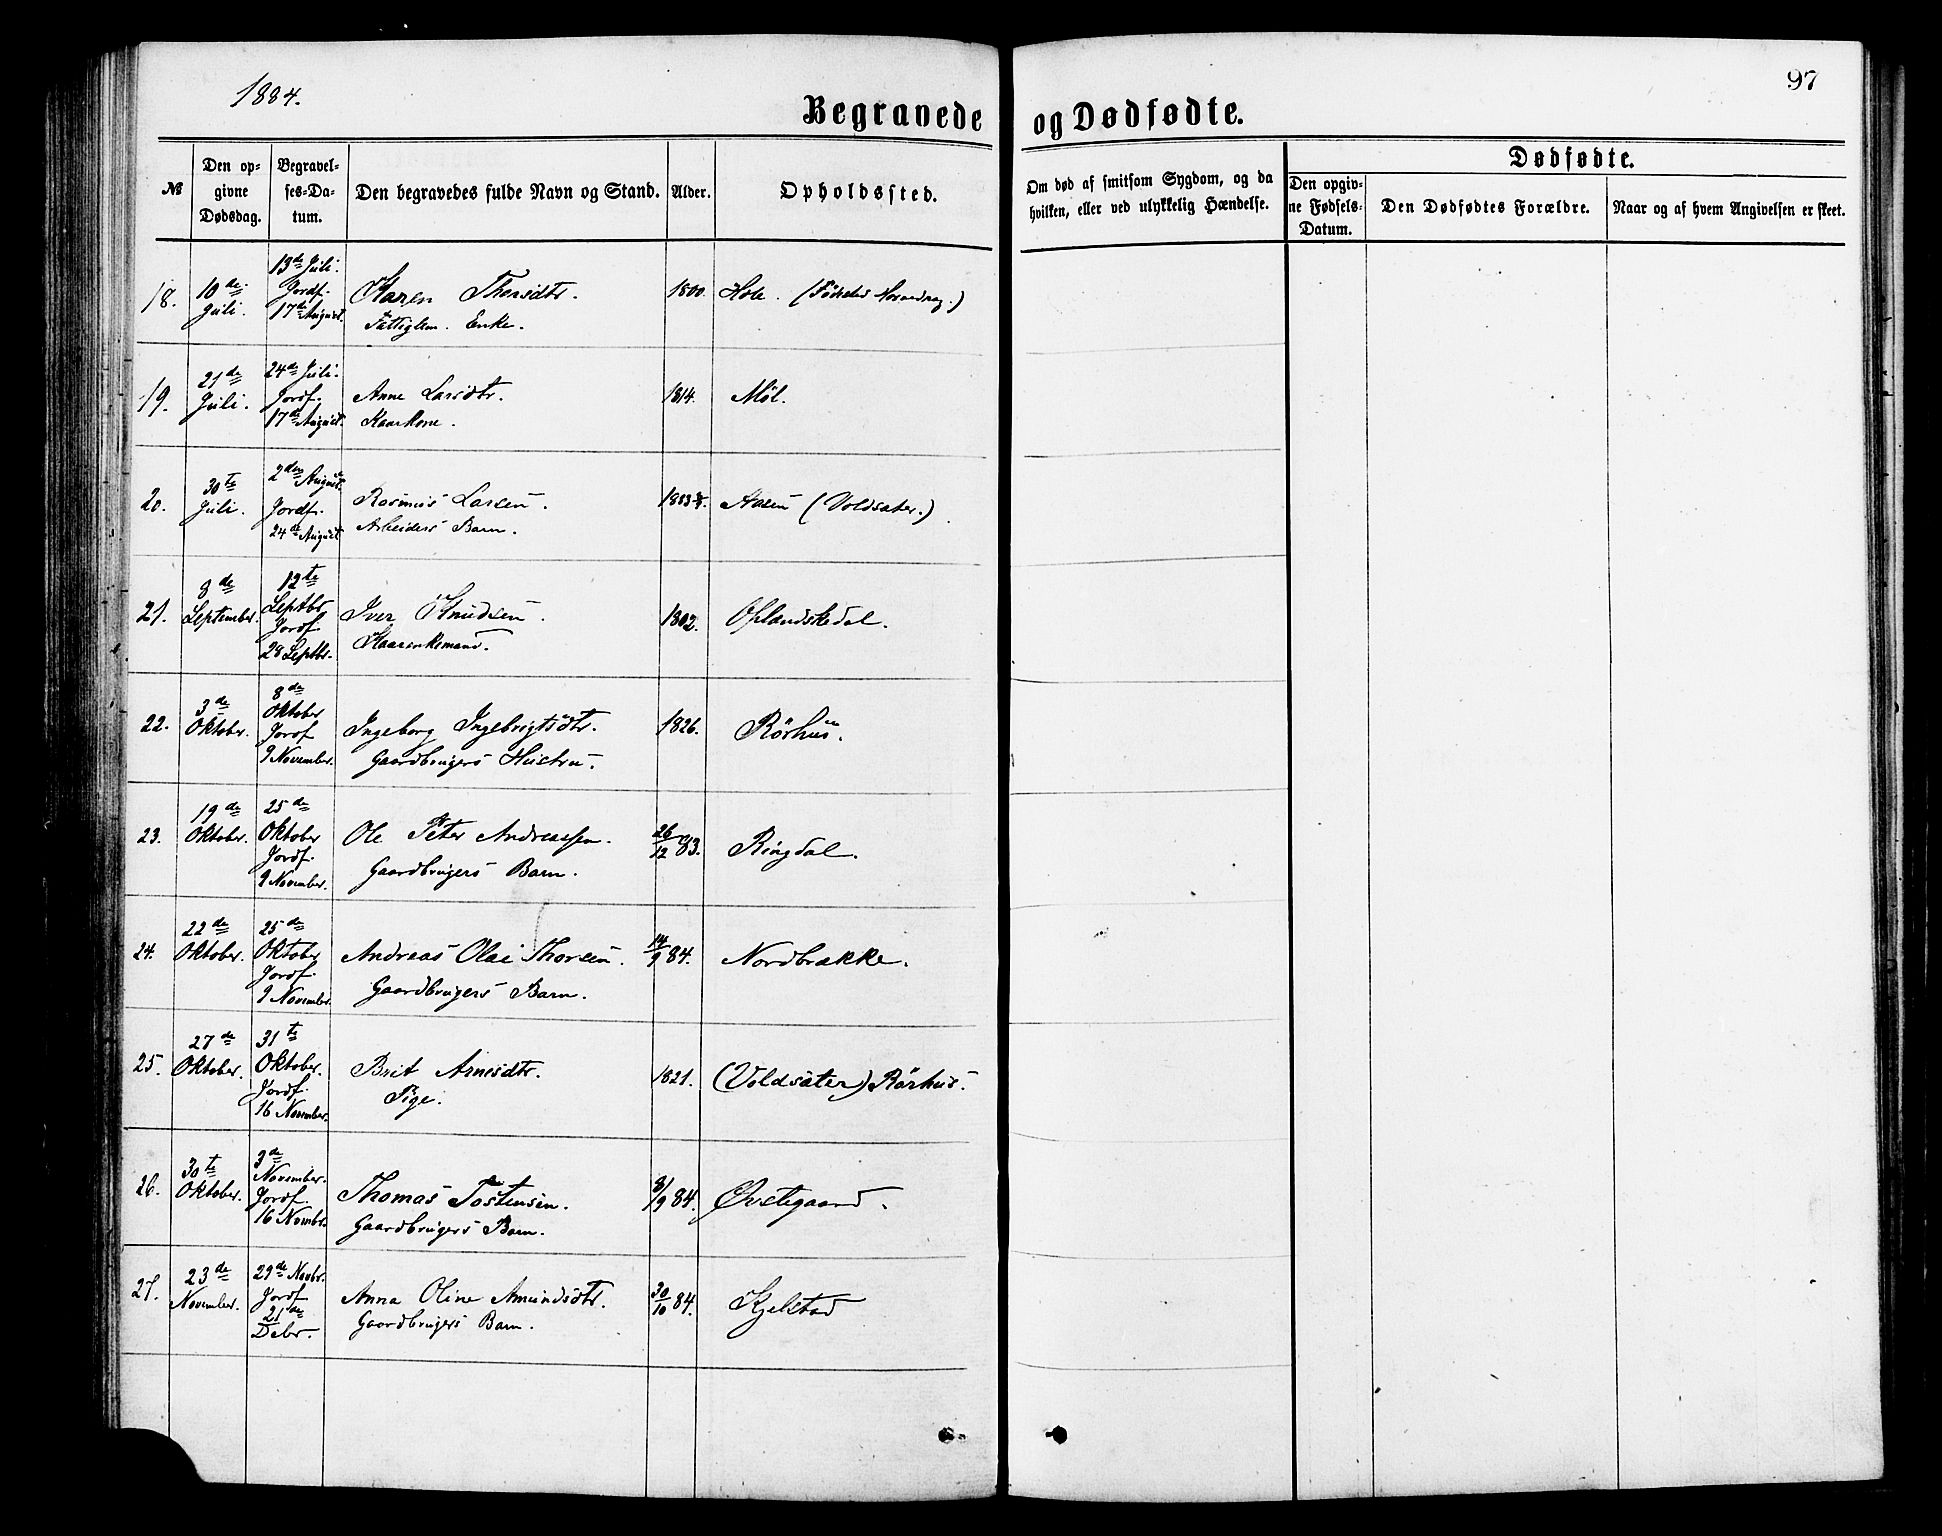 1884.
97
Begravede og Dødfødte.
№
Den op-
givne
Dødsdag.
Begravel-
ses-Da-
tum.
Den begravedes fulde Navn og Stand.
Alder.
Opholdssted.
Om død af smitsom Sygdom, og da
hvilken, eller ved ulykkelig Hændelse.
Dødfødte.
Den opgiv-
ne Fødsels-
Datum.
Den Dødfødtes Forældre.
Naar og af hvem Angivelsen er skeet.
18.
10de
Juli.
13de Juli.
Jordf.
17de August.
Karen Thorsdtr.
Fattiglem. Enke.
1800.
Hole. (Fødested
19.
21de
Juli.
24de Juli.
Jordf.
17de August.
Anne Larsdtr.
Kaarkone.
1814.
Møl.
20.
30te
Juli.
2den August.
Jordf.
24de August
Rasmus Larsen.
Arbeiders Barn.
1883
Aasen (Voldsæter.)
21.
8de
September.
12te
Septbr
Jordf
28 Septbr.
Iver Knudsen.
Kaarenkemand.
1802.
Oplandskedal.
22.
3de
Oktober.
8de
Oktober
Jordf
9 November.
Ingeborg Ingebrigtsdtr.
Gaardbrugers Hustru.
1826.
Rørhus.
23.
19de
Oktober.
25de
Oktober
Jordf.
9 November.
Ole Peter Andreassen.
Gaardbrugers Barn.
26/12 83.
Ringdal.
24.
22de
Oktober.
25de
Oktober
Jordf.
9 Novembr.
Andreas Olai Thorsen.
Gaardbrugers Barn.
14/9 84.
Nordbrække.
25.
27de
Oktober.
31te
Oktober.
Jordf.
16 November.
Brit Arnesdtr.
Pige.
1821.
(Voldsæter) Rørhus.
26.
30te
Oktober.
3de
November.
Jordf.
16 Novembr.
Thomas Tostensen.
Gaardbrugers Barn.
8/9 84.
Øvstegaard.
27.
23de
November.
29de Novbr.
Jordf
21de
Debr.
Anna Oline Amundsdtr.
Gaardbrugers Barn.
30/10 84.
Kjelstad